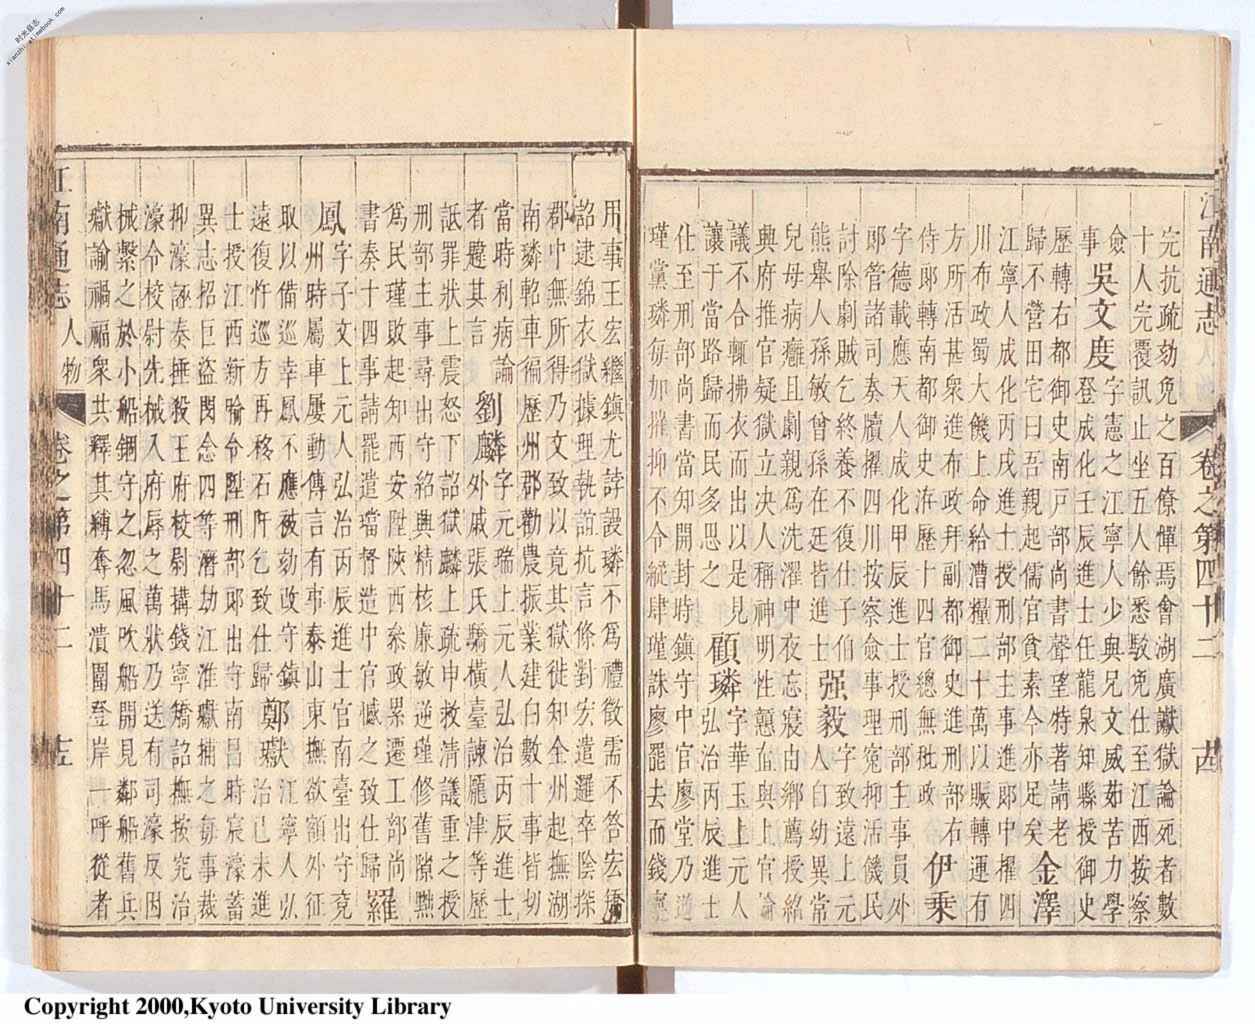 时光县志
江南通志
卷之第四十二
完抗疏劾免之百僚憚焉會湖廣讞獄論死者數
十人完覆訊止坐五人餘悉駁免仕至江西按察
僉事 吳文度 字憲之江寧人少與兄文威茹苦力學
歷轉右都御史南戸部尚書聲望特著請老
登成化壬辰進士任龍泉知縣授御史
歸不營田宅曰吾親起儒官貧素今亦足矣 金澤
江寧人成化丙戌進士授刑部主事進郎中擢四
川布政蜀大饑上命給漕糧二十萬以賑轉運有
方所活甚衆進布政拜副都御史進刑部右
侍郎轉南都御史洊歷十四官總無秕政 伊乘
字德載應天人成化甲辰進士授刑部主事員外
郎管諸司奏牘擢四川按察僉事理寃抑活饑民
討除劇賊乞終養不復仕子伯
熊舉人孫敏曾孫在廷皆進士 强毅 字致遠上元
人自幼異常
兒母病癱且劇親爲洗濯中夜忘寢由鄉薦授紹
興府推官疑獄立决人稱神明性戇直與上官論
議不合輒拂衣而出以是見
讓于當路歸而民多思之 顧璘 字華玉上元人
弘治丙辰進士
仕至刑部尚書當知開封時鎮守中官廖堂乃逆
瑾黨璘每加摧抑不令縱肆瑾誅廖罷去而錢寧
用事王宏繼鎮尤誖謾璘不爲禮徵需不答宏
詔逮錦衣獄據理執誼抗言條對宏遣邏卒陰探
郡中無所得乃文致以竟其獄徙知全州起撫湖
南璘軺車徧歷州郡勸農振業建白數十事皆切
當時利病論
者韙其言 劉麟 字元瑞上元人弘治丙辰進士
外戚張氏驕橫臺諫龎津等歷
詆罪狀上震怒下詔獄麟上疏申救清議重之授
刑部主事尋出守紹興精核廉敏逆瑾修舊隙黜
爲民瑾敗起知西安陞陝西叅政累遷工部尚
書奏十四事請罷遣璫督造中官憾之致仕歸 羅
鳳 字子文上元人弘治丙辰進士官南臺出守兖
州時屬車屢動傳言有事泰山東撫欲額外征
取以備巡幸鳳不應被劾改守鎮
遠復忤巡方再移石阡乞致仕歸 鄭瓛 江寧人弘
治己未進
士授江西新喻令陞刑部郎出守南昌時宸濠蓄
異志招巨盜閔念四等濟劫江淮瓛捕之每事裁
抑濠誣奏捶殺王府校尉搆錢寧矯詔撫按究治
濠令校尉先械入府辱之萬狀乃送有司濠反因
械繫之於小船錮守之忽風吹船開見鄰船舊兵
瓛諭禍福衆共釋其縛奪馬潰圍登岸一呼從者
江南通志 人物 卷之第四十二
Copyright 2000,Kyoto University Library